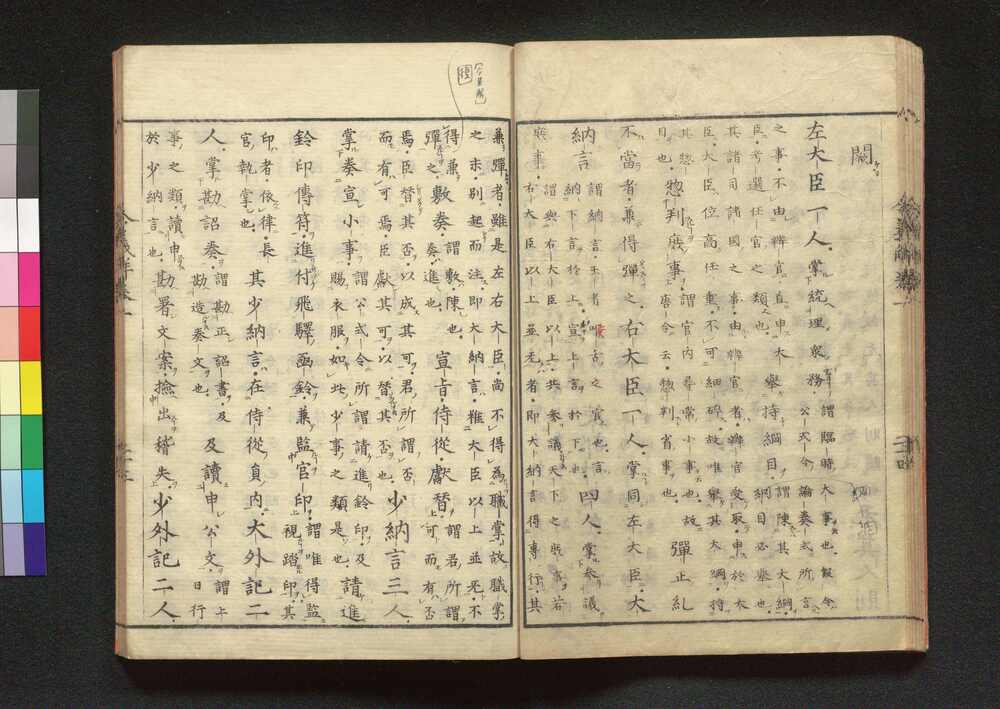 闕
左大臣一人。掌統理衆務。謂臨時大事也。假令
公式令論奏式所言
之事。不由辨官。直申大
臣。考選任官之類也。舉持綱目。謂陳其大綱。
綱目必舉也。
其諸司諸國之事。由辨官者。辨官受取申於大
臣。大臣位高任重。不可細碎。故唯舉其大綱。持
其惣
目也。惣判庶事。謂官内尋常小事也。故
唐令云。惣判省事也。彈正糺
不當者。兼得彈之。右大臣一人。掌同左大臣。大
納言謂納言。王者喉舌之官也。言
納下言於上。宣上言於下也。四人。掌參議
庶事。謂與右大臣以上。共參議天下之庶事。若
右大臣以上並无者。即大納言得專行。其
兼彈者。雖是左右大臣。尚不得為職掌。故職掌
之末。別起而注。即大納言。雖大臣以上並无。不
得兼
彈之。敷奏。謂敷陳也。
奏進也。宣旨。侍從。獻替。謂君所謂
可。而有否
焉。臣督其否。以成其可。君所謂否。
而有可焉。臣獻其可。以替其否也。少納言三人。
掌奏宣小事。謂公式令所謂請進鈴印。及
賜衣服。如此少事之類是也。請進
鈴印傳符。進付飛驛函鈴。兼監官印。謂唯得監
視踏印。其
印者。依律。長
官執掌也。其少納言。在侍從員内。大外記二
人。掌勘詔奏。謂勘正詔書。及
勘造奏文也。及讀申公文。謂上
日行
事之類。讀申
於少納言也。勘署文案。撿出稽失。少外記二人。